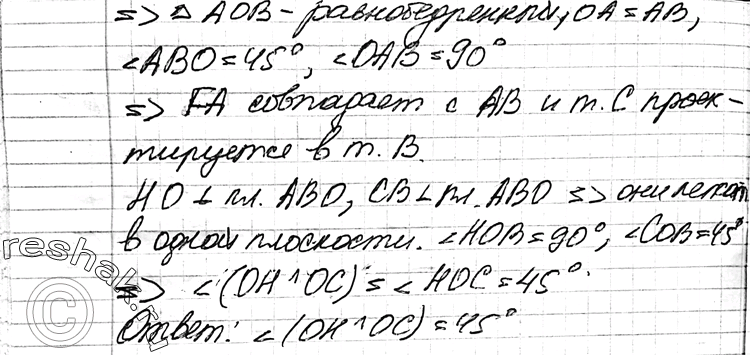 => △ AOB - равнобедренный, OA = AB,
∠ABO = 45°, ∠OAB = 90°
=> FA совпадает с AB и т. C проек-
тируется в т. B.
HO ⊥ пл. ABO, CB ⊥ пл. ABO => они лежат
в одной плоскости. ∠HOB = 90°, ∠COB = 45°
=> ∠(OH ^ OC) = ∠HOC = 45°.
Ответ: ∠(OH ^ OC) = 45°
©reshak.ru